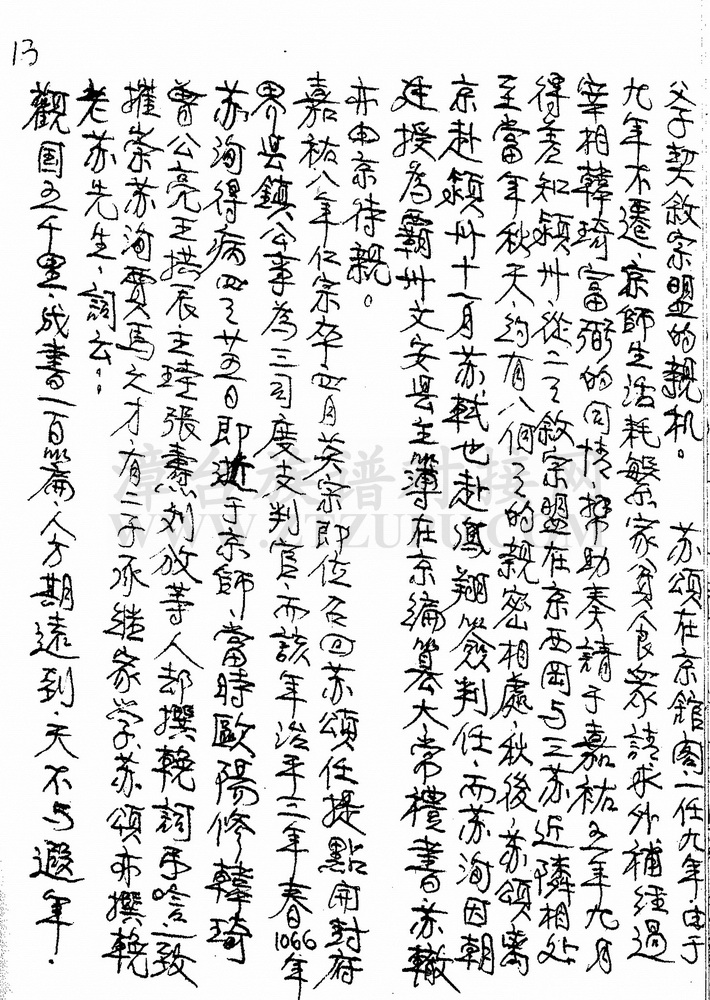 13
父子契敘宗盟的親机。 苏頌在京館閣一任九年,由于
九年不遷,京師生活耗繁家貧食眾請求外補经過
宰相韓琦富弼的同情帮助奏請于嘉祐五年九月
得差知颍州,從二、三敘宗盟在京西岡与三苏近隣相处
至當年秋天,約有八個月的親密相處,秋後,苏頌离
京赴颍州十一月苏軾也赴鳳翔簽判任,而苏洵因朝
廷授為霸州文安县主簿在京编篡太常禮書苏轍
亦由京待親。
嘉祐八年仁宗卒四月英宗即位召回苏頌任提點開封府
界县鎮公事為三司度支判官,而該年治平三年春1066年
苏洵得病四月廿五日即逝于京師,當時歐陽修韓琦
曾公亮王拱辰王珪張燾刘攽等人却撰輓詞吊唁一致
推崇苏洵賈馬之才有二子承继家学苏頌亦撰輓
老苏先生,詞云:
觀国五千里,成書一百篇,人方期遠到,天不与遐年.
章台族谱对接网
WWW.CTZUPU.COM